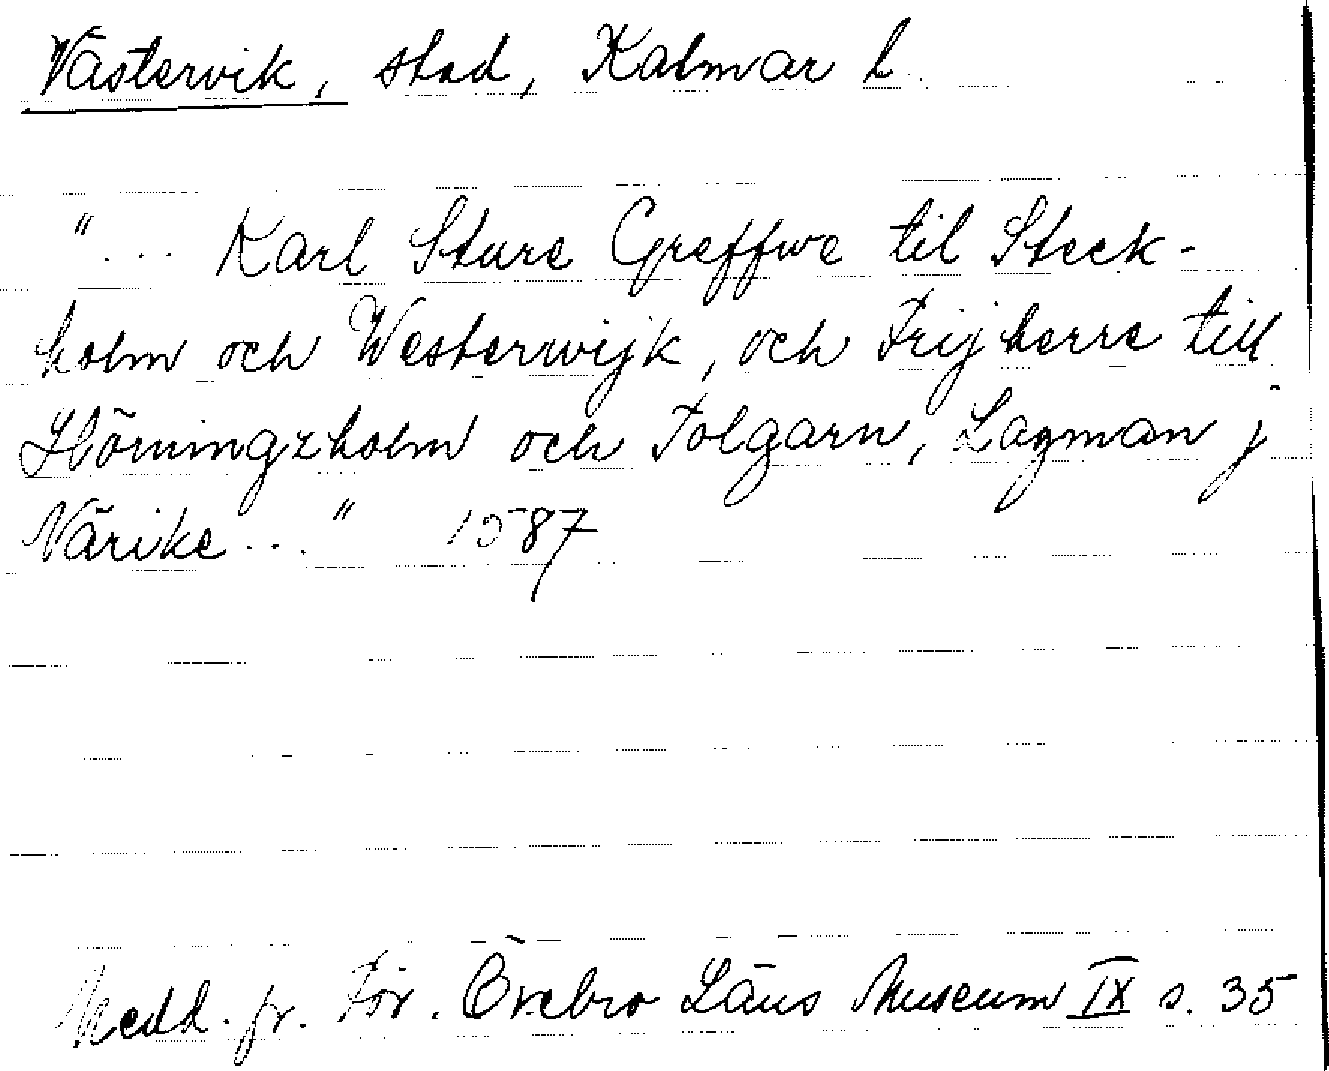 Västervik, stad, Kalmar l.
"... Karl Sture Greffwe til Steck-
holm och Westerwijk, och Frijherre till
Hörningzholm och Tolgarn, Lagman j
Närike ..." 1587
Medd. fr. För. Örebro Läns Museum IX s. 35